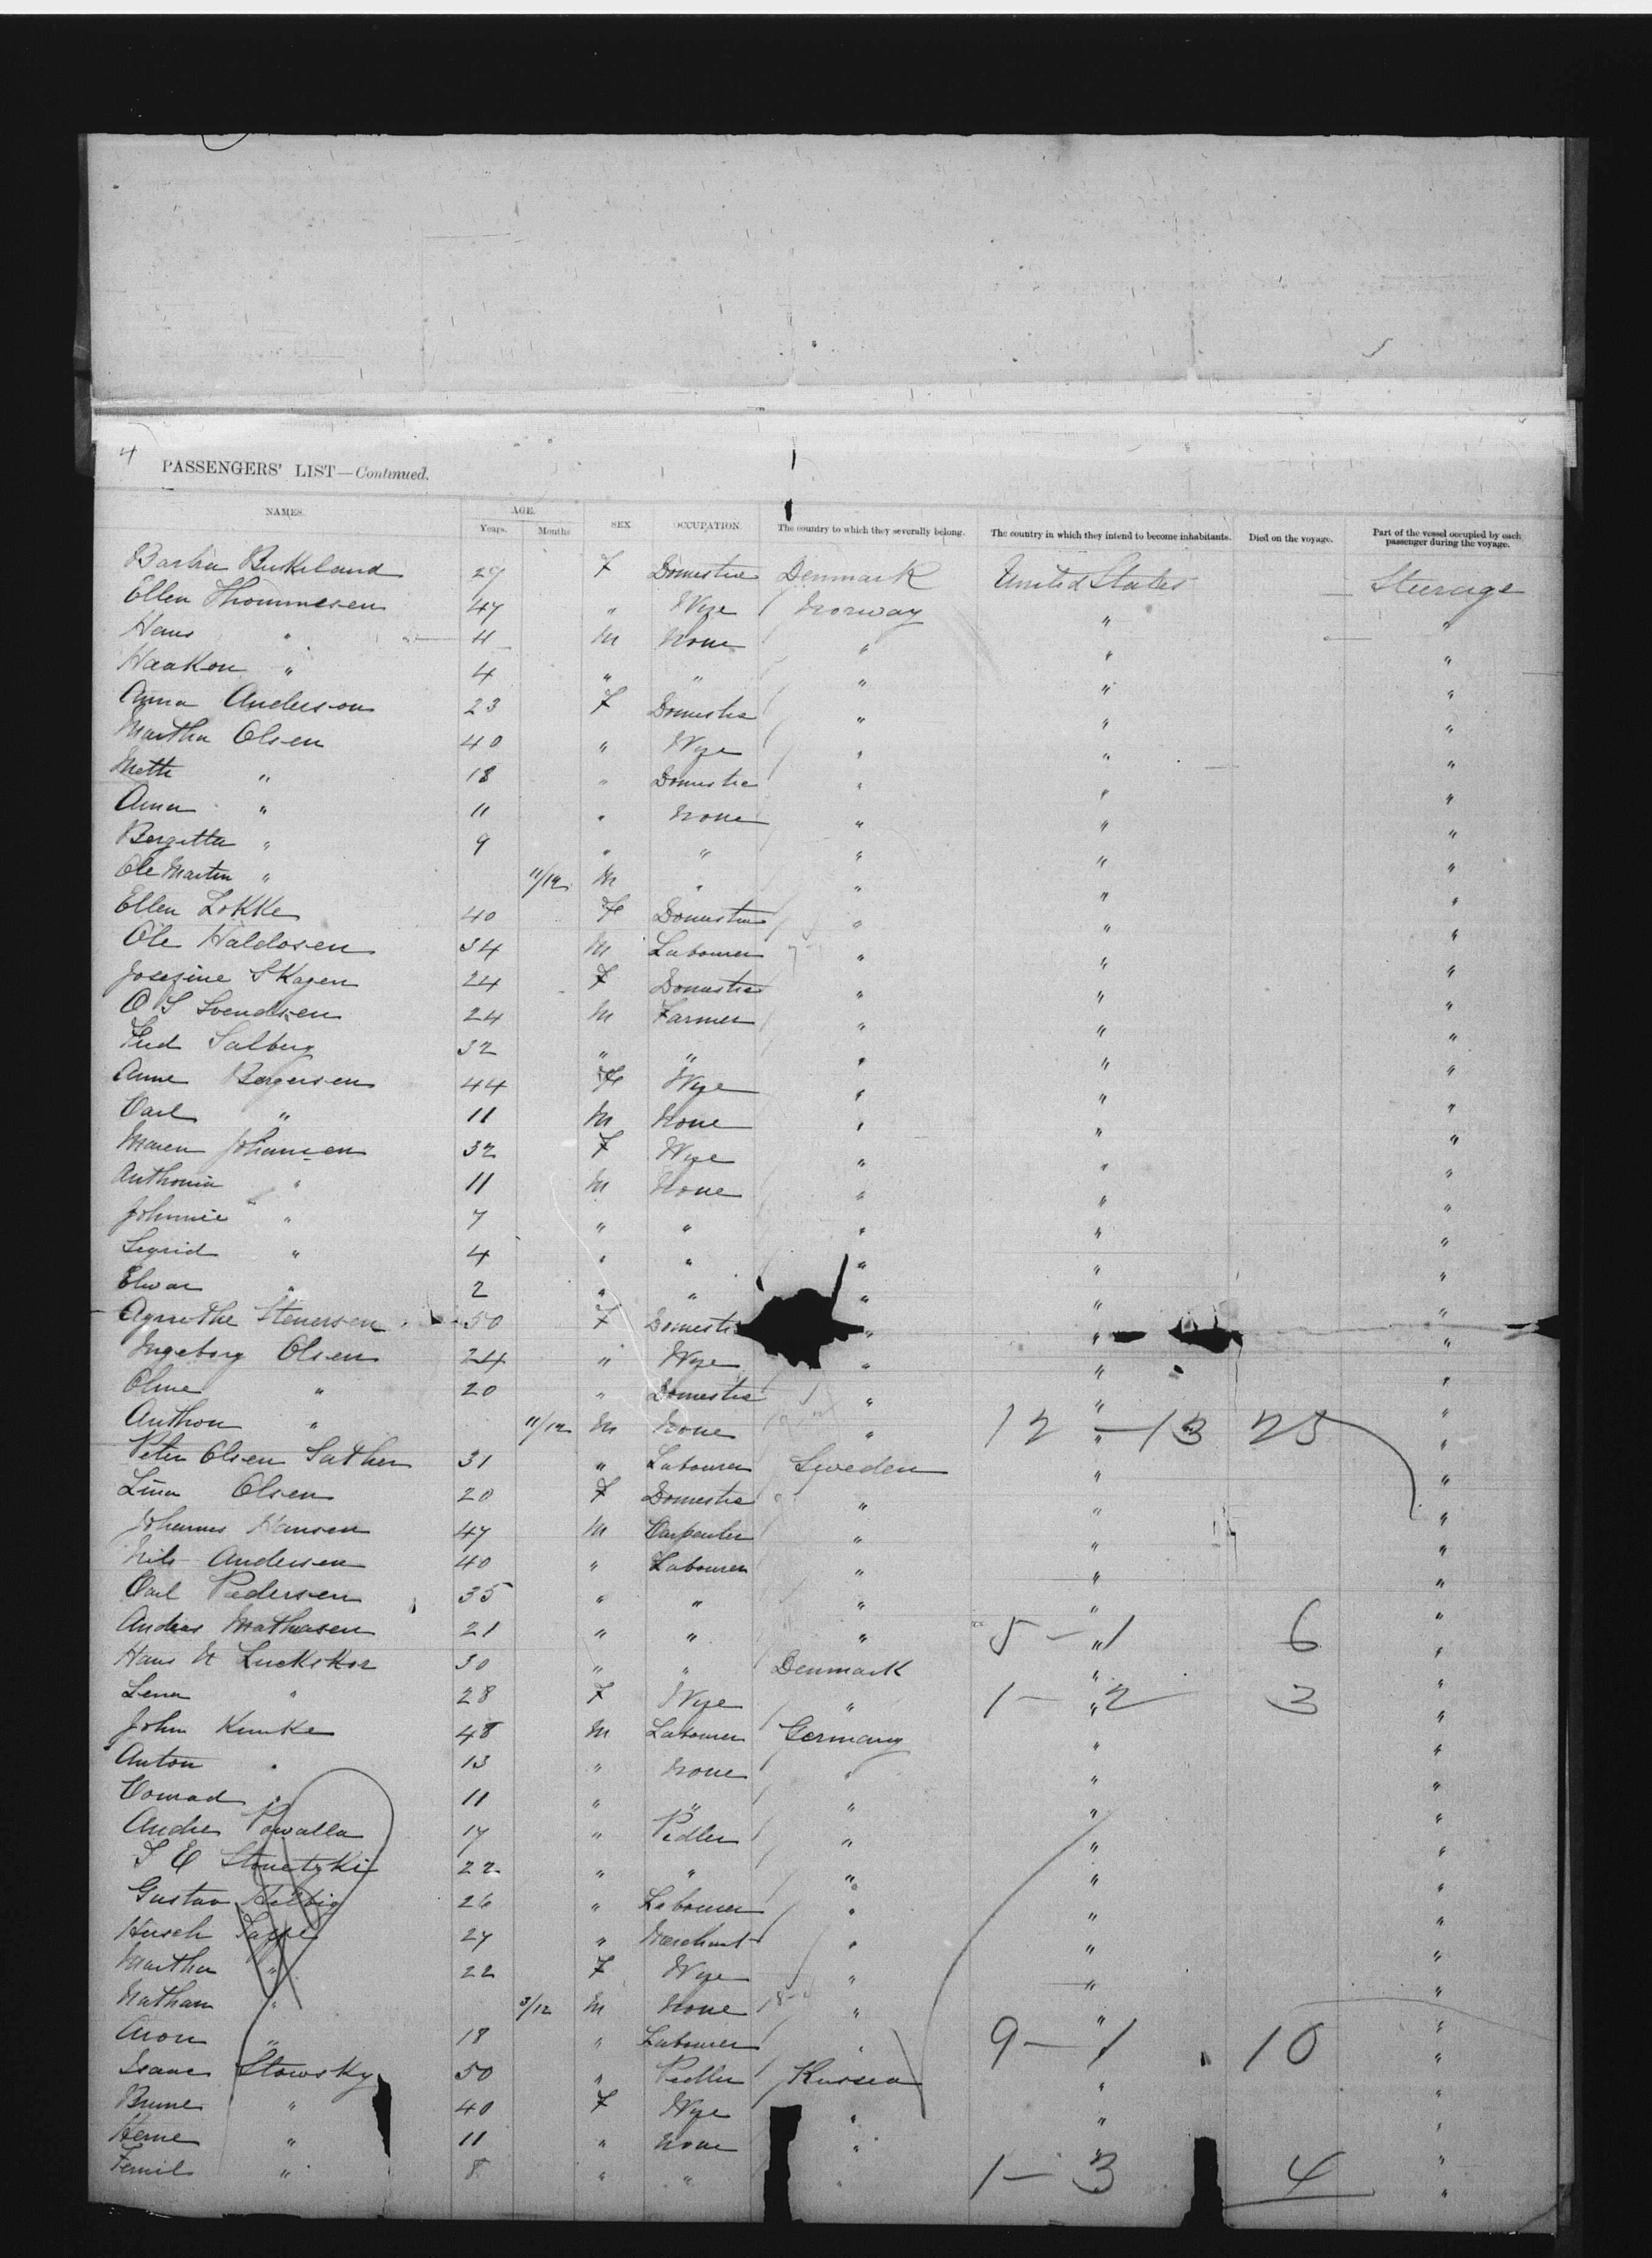 4 PASSENGERS' LIST—Continued.
NAMES. AGE. Years. Months SEX OCCUPATION. The country to which they severally belong. The country in which they intend to become inhabitants. Died on the voyage. Part of the vessel occupied by each passenger during the voyage.
Barbra Birkeland 27 F Domestic Denmark United States Steerage
Ellen Thommesen 47 " Wife Norway " "
Hans " 11 M None " " "
Haakon " 4 " " " " "
Anna Anderson 23 F Domestic " " "
Martha Olsen 40 " Wife " " "
Mette " 18 " Domestic " " "
Anna " 11 " None " " "
Bergetta " 9 " " " " "
Ole Martin " 11/12 M " " " "
Ellen Lokke 40 F Domestic " " "
Ole Haldosen 34 M Labourer " " "
Josefine Skagen 24 F Domestic " " "
O S Svendsen 24 M Farmer " " "
Salberg 32 " " " " "
Anne Bergersen 44 F Wife " " "
Carl " 11 M None " " "
Maren Johansen 32 F Wife " " "
Anthonia " 11 M None " " "
Johnnie " 7 " " " " "
Sigrid " 4 " " " " "
Elvar " 2 " " " " "
Agnethe Stenersen 50 F Domesti " " "
Ingeborg Olsen 24 " Wife " " "
Oline " 20 " Domestic " " "
Anthon " 11/12 M None " 12 " —13 25 "
Peter Olsen Sather 31 " Labourer Sweden " "
Lina Olsen 20 F Domestic " " "
Johannes Hansen 47 M Carpenter " " "
Nils Andersen 40 " Labourer " " "
Carl Pedersen 35 " " " " "
Andras Mathasen 21 " " " 5 – " 1 6 "
Hans N 30 " " Denmark " "
Lena " 28 F Wife " 1 — " 2 3 "
John Kunke 48 M Labourer Germany " "
Anton " 13 " None " " "
Conrad " 11 " " " " "
Andre Powalla 17 " Pedler " " "
S E Stonetzki 22 " " " " "
Gustav Helbig 26 " Labourer " " "
Hirsch 27 " Merchant " " "
Martha " 22 F Wife " " "
Nathan " 3/12 M None " " "
Aron " 18 " Labourer " 9 — 1 10 "
Isaac Stowsky 50 " Pedler Russia " "
Brune " 40 F Wife " " "
Herne " 11 " None " " "
Femil " 8 " " " 1 — 3 4 "